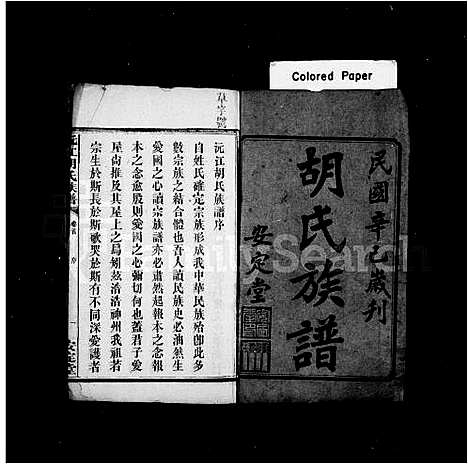 Colored Paper
民國辛巳歲刋
胡氏族譜
安定堂
沅江胡氏族譜序
自姓氏確定宗族形成我中華民族殆卽此多
數宗族之結合體也吾人讀民族史必油然生
愛國之心讀宗族譜亦必肅然起報本之念報
本之念愈殷則愛國之心彌切何也蓋君子愛
屋尙推及其屋上之烏矧茲浩浩神州我祖若
宗生於斯長於斯歌哭於斯有不同深愛護者
沅江胡氏族譜
卷首
序
一
安定堂
FamilySearch